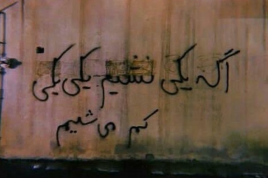 اگه یکی نشیم یکی یکی
کم می‌شیم